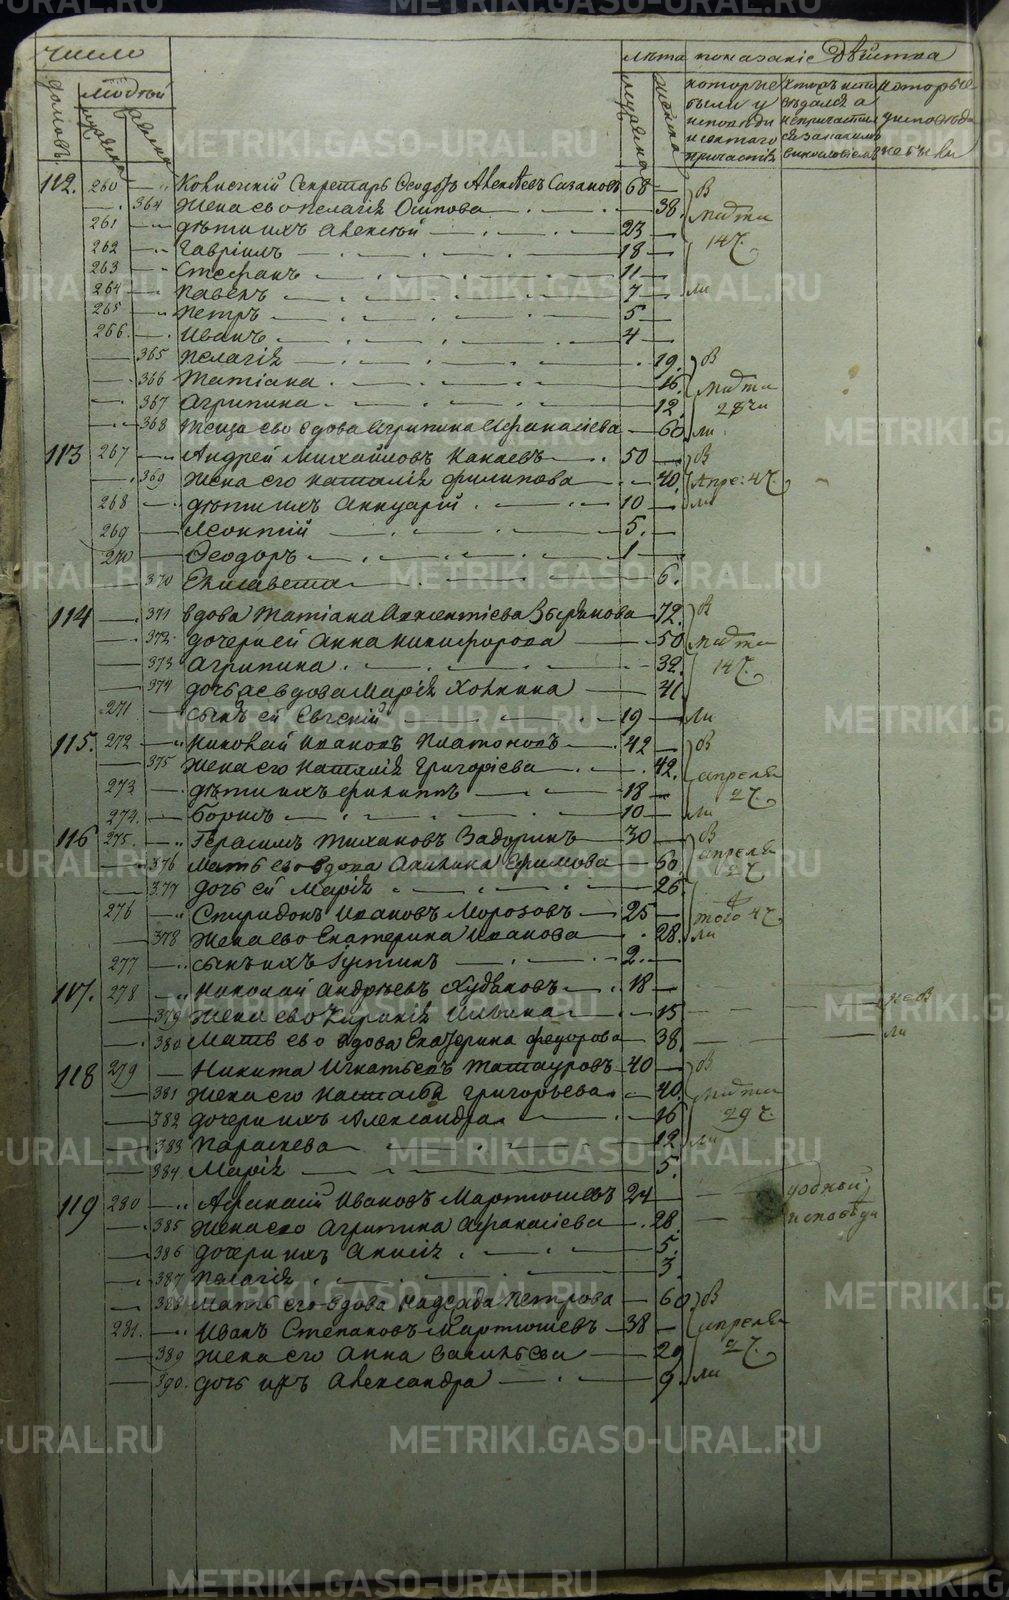 число
лѣта показанiе Дѣйства
домовъ людьй
мужеска женска
мужеска женска
которые были у исповѣди и святаго причастiя
исповѣдался а непричастился
которые у исповѣди не были
112. 260 Секретарь Ѳеодоръ Алексѣевъ Сазановъ 68 В
364 жена ево Пелагiя Осипова 38. марта
261 дѣти ихъ Алексѣй 23 14 Ч.
262 Гаврiилъ 18
263 Стефанъ 11
264 Павелъ 7 ли
265 Петръ 5
266. Иванъ 4
365 Пелагiя 19. В
366 Татiана 16. марта
367 Агрипина 12. 28 чи
368 теща ево вдова Агрипина Афанасiева 60. ли
113 267 Андрей Михайловъ Канаевъ 50 В
369 жена его Наталiя Филипова 40. Апре: 4 Ч.
268 дѣти ихъ Аннуарiй 10 ли
269 Леонтiй 5.
270 Ѳеодоръ 1
370 Елисавета 6.
114 371 вдова Татiана 72. В
372 дочери ей Анна Никифорова 50 марта
373 Агрипина 32. 14 Ч.
374 дочь ас вдова Марiя 41
271 сынъ ей Евгенiй 19 ли
115. 272 Николай Ивановъ Платоновъ 42 В
375 жена его Наталiя Григорiева 42. апреля
273 дѣти ихъ Филиппъ 18 2 Ч.
274. Борисъ 10 ли
116 275. Герасимъ Тихановъ Задоринъ 30 В
376 мать ево вдова Акилина Ефимова 60. апреля
377 дочь ей Марiя 26 2 Ч.
276 Спиридонъ Ивановъ Морозовъ 25 того 4 Ч.
378 жена ево Екатерина Иванова 28. ли
277 сынъ ихъ 2.
117. 278 Николай Андрѣевъ Худяковъ 18 не В
379 жена ево Ильина 15
380 мать ево вдова Екатерина Федорова 38 ли
118 279 Никита Игнатьевъ Татауровъ 40 В
381 жена его Наталья Григорьева 40. марта
382 дочери ихъ Александра 16 29 Ч.
383 Параскева 12 ли
384 Марiя 5.
119 280 Афанасiй Ивановъ Мартюшевъ 24
385 жена его Агрипина Афанасiева 28. исповѣди
386 дочери ихъ Анисiя 5.
387 Пелагiя 3
388 мать его вдова Надежда Петрова 60 В
281. Иванъ Степановъ Мартюшевъ 38 апреля
389 жена его Анна Васильева 29 2 Ч.
390. дочь ихъ Александра 9. ли
METRIKI.GASO-URAL.RU